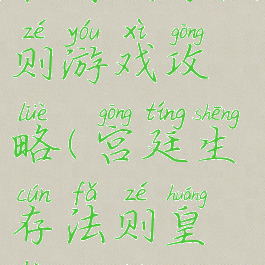 zé yóu xì gōng
则游戏攻
lüè gōng tíng shēng
略(宫廷生
cún fǎ zé huáng
存法则皇